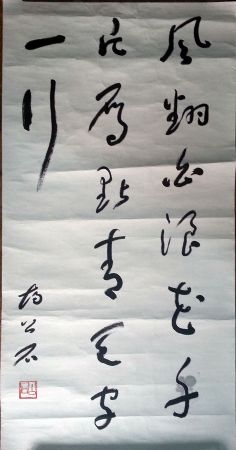 風翻白浪花千
片雁點青天字
一行
公石